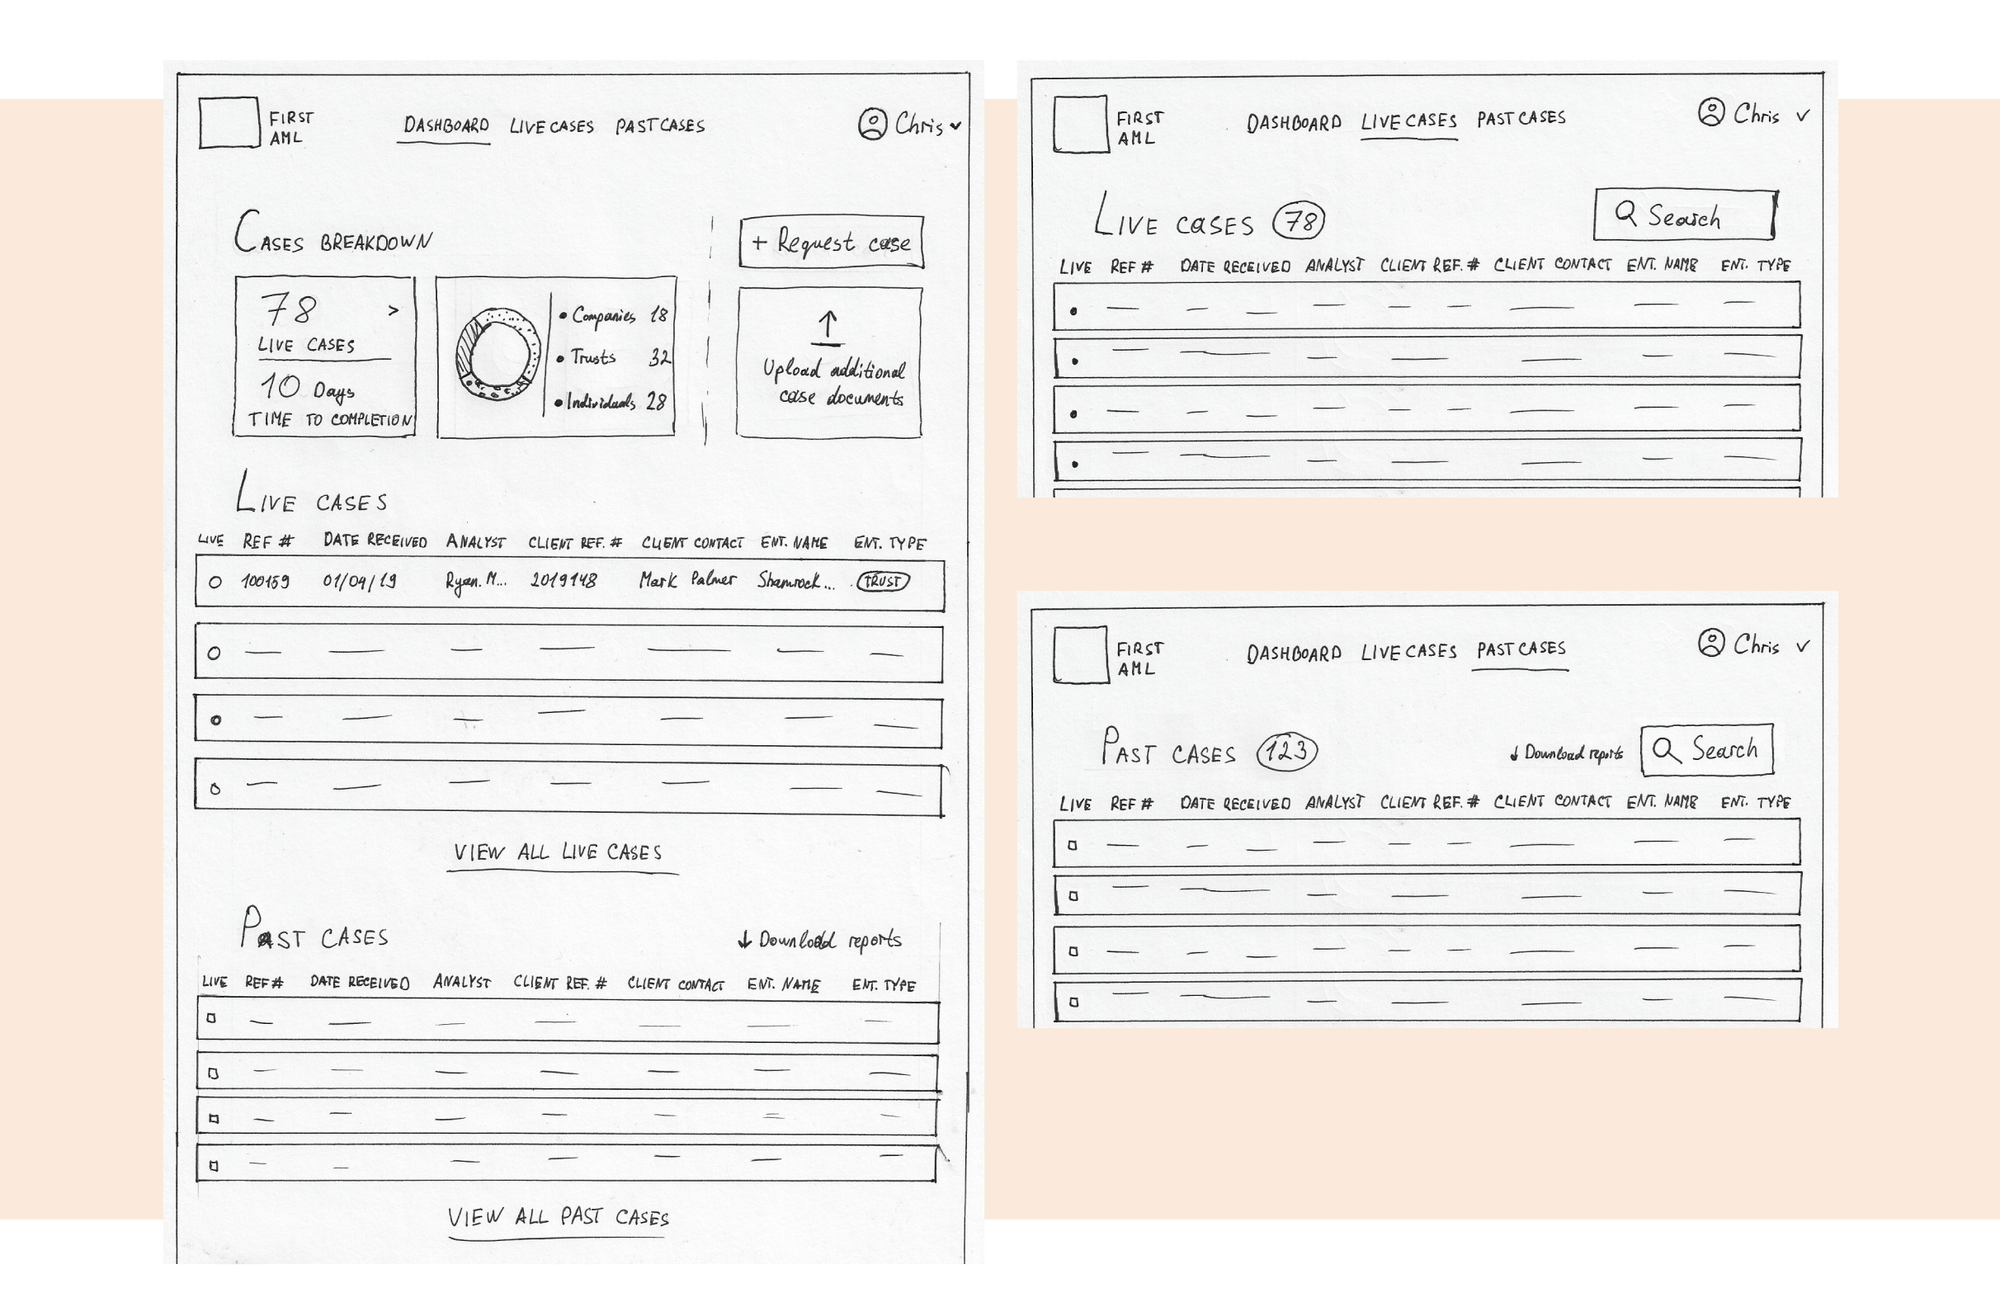 FIRST AML
DASHBOARD LIVE CASES PAST CASES
Chris
CASES BREAKDOWN
+ Request case
78 >
LIVE CASES
10 Days
TIME TO COMPLETION
• Companies 18
• Trusts 32
• Individuals 28
Upload additional
case documents
LIVE CASES
LIVE REF # DATE RECEIVED ANALYST CLIENT REF. # CLIENT CONTACT ENT. NAME ENT. TYPE
100159 01/04/19 Ryan. M... 2019148 Mark Palmer Shamrock... TRUST
VIEW ALL LIVE CASES
PAST CASES
Download reports
LIVE REF # DATE RECEIVED ANALYST CLIENT REF. # CLIENT CONTACT ENT. NAME ENT. TYPE
VIEW ALL PAST CASES
FIRST AML
DASHBOARD LIVE CASES PAST CASES
Chris
LIVE CASES 78
Search
LIVE REF # DATE RECEIVED ANALYST CLIENT REF. # CLIENT CONTACT ENT. NAME ENT. TYPE
FIRST AML
DASHBOARD LIVE CASES PAST CASES
Chris
PAST CASES 123
Download reports
Search
LIVE REF # DATE RECEIVED ANALYST CLIENT REF. # CLIENT CONTACT ENT. NAME ENT. TYPE